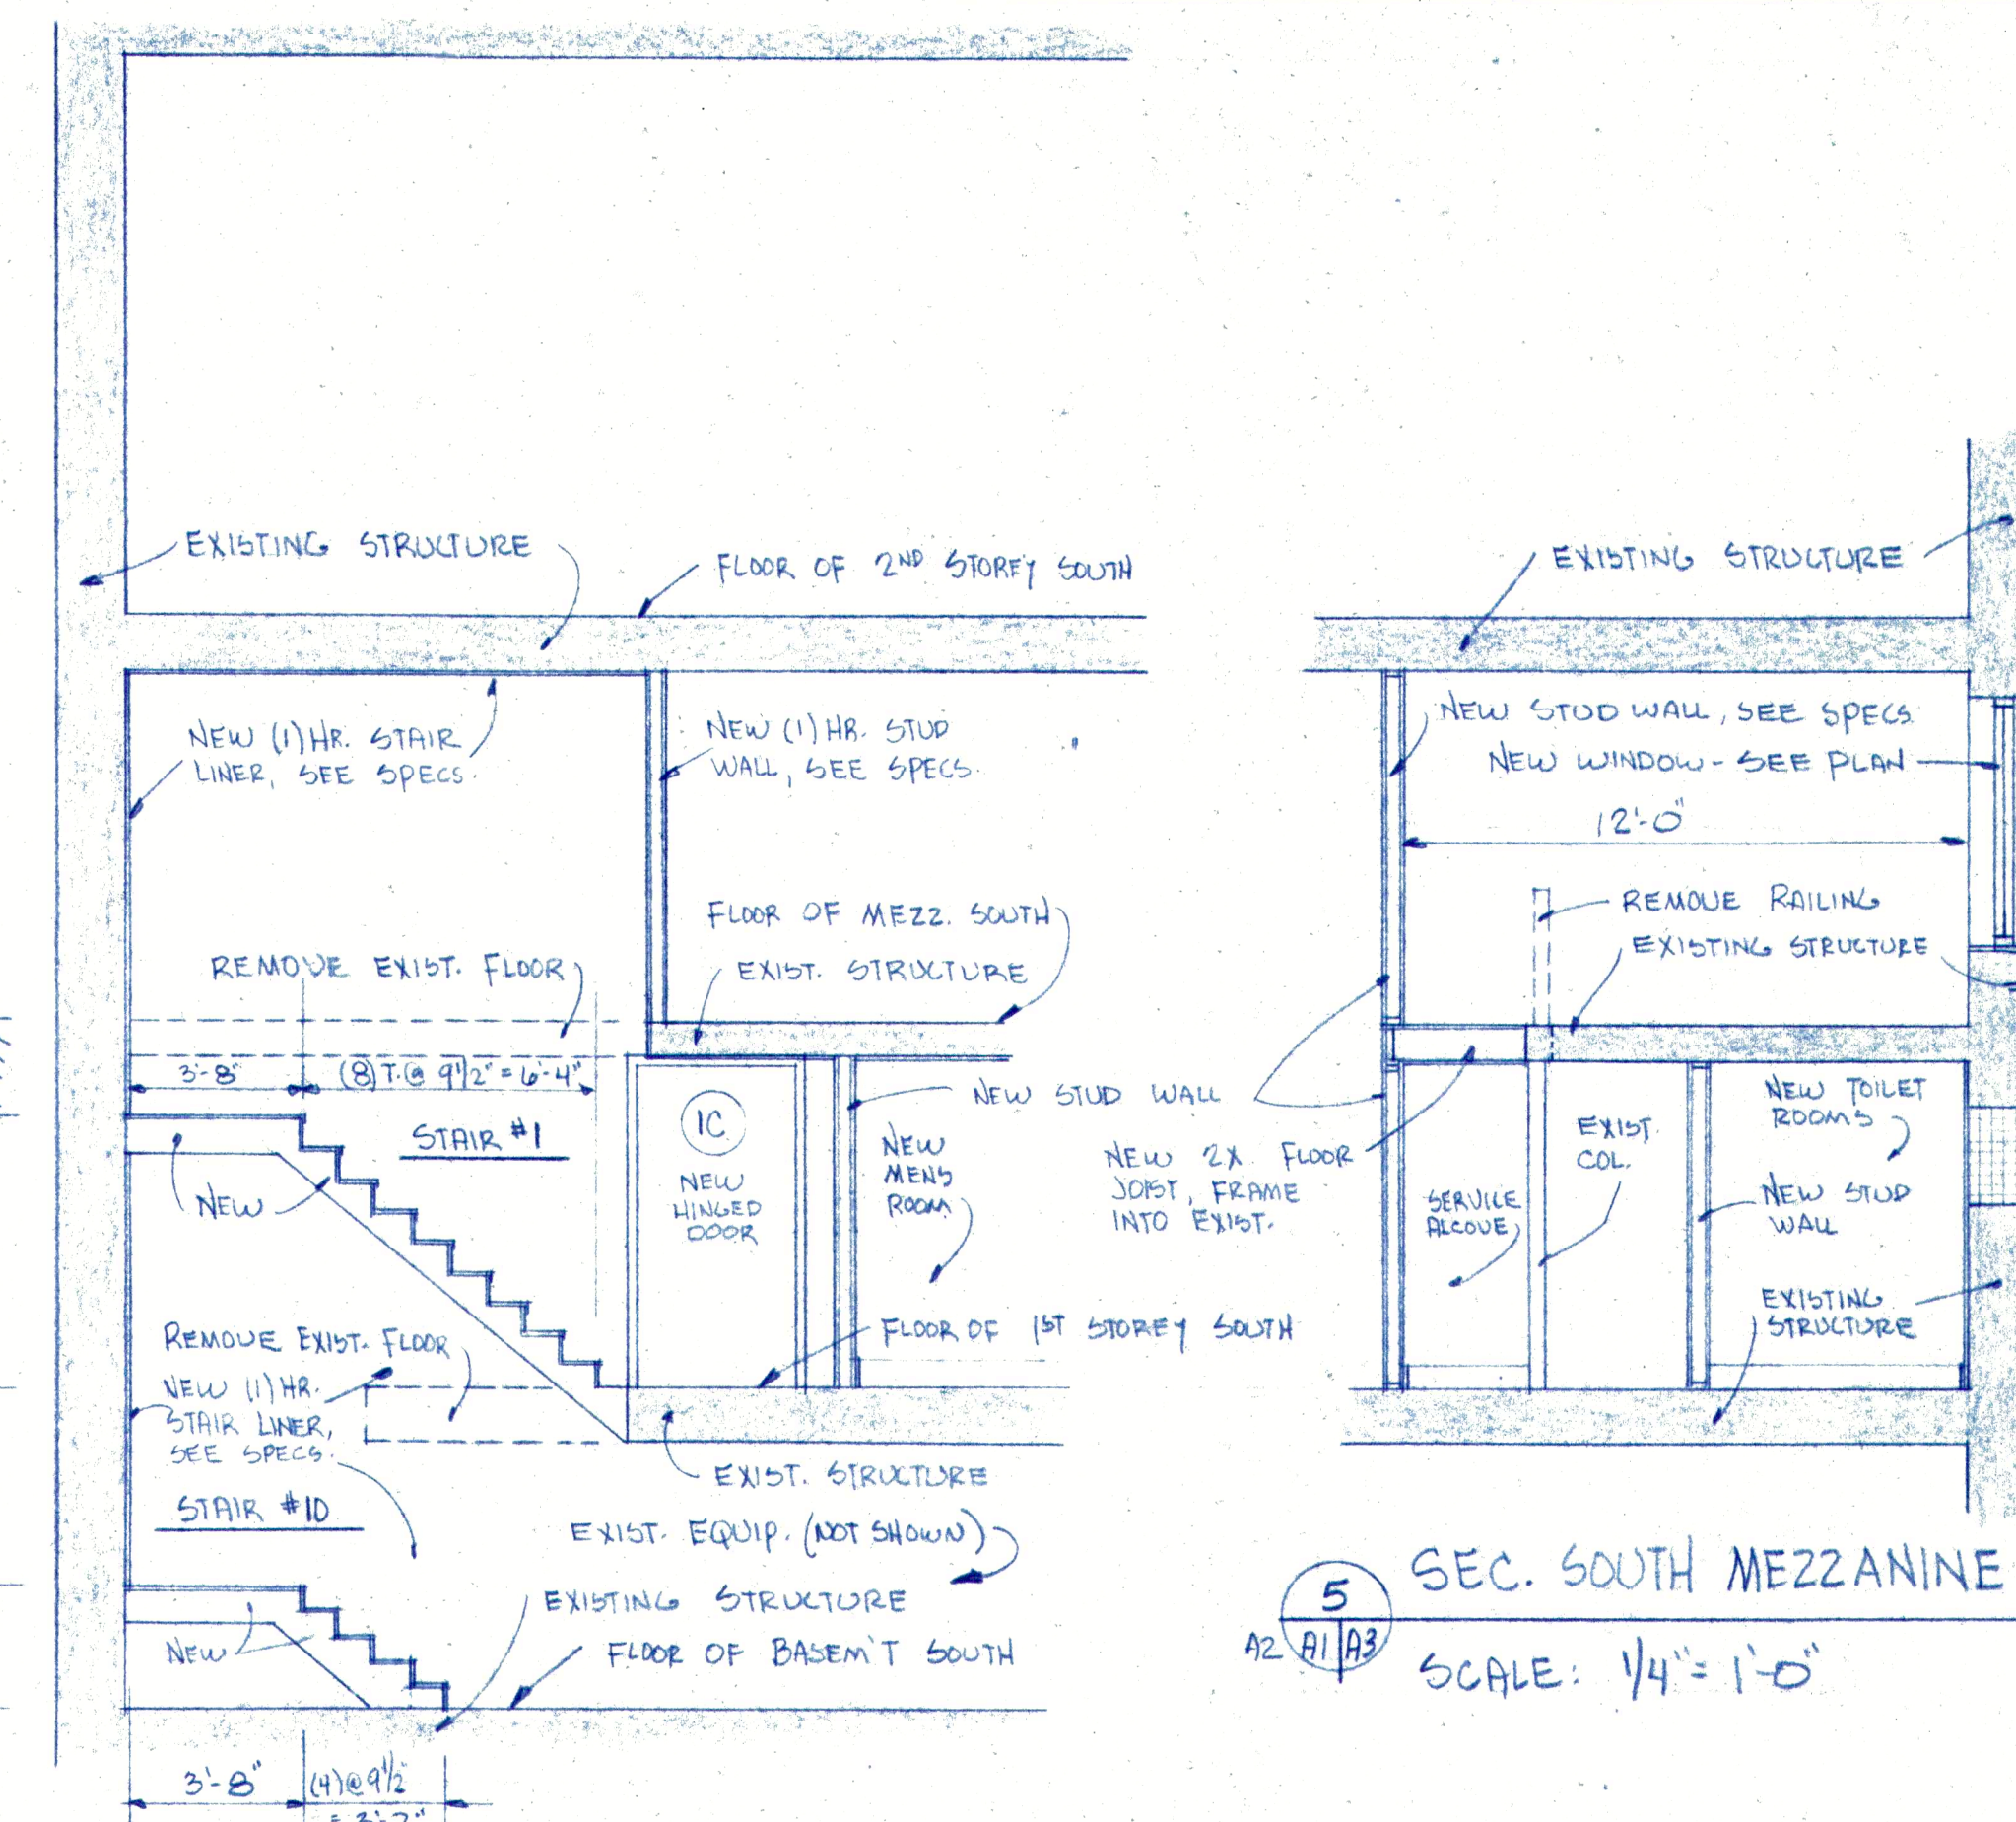 EXISTING STRUCTURE
FLOOR OF 2ND STOREY SOUTH
NEW (1) HR. STAIR
LINER, SEE SPECS.
NEW (1) HR. STUD
WALL, SEE SPECS.
FLOOR OF MEZZ. SOUTH
EXIST. STRUCTURE
REMOVE EXIST. FLOOR
3'-8"
(8) T. @ 9 1/2" = 6'-4"
STAIR #1
NEW
1C
NEW
HINGED
DOOR
NEW
MENS
ROOM
NEW STUD WALL
FLOOR OF 1ST STOREY SOUTH
REMOVE EXIST. FLOOR
NEW (1) HR.
STAIR LINER,
SEE SPECS.
STAIR #10
EXIST. STRUCTURE
EXIST. EQUIP. (NOT SHOWN)
EXISTING STRUCTURE
FLOOR OF BASEM'T SOUTH
NEW
3'-8"
(4) @ 9 1/2"
= 3'-2"
EXISTING STRUCTURE
NEW STUD WALL, SEE SPECS.
NEW WINDOW - SEE PLAN
12'-0"
REMOVE RAILING
EXISTING STRUCTURE
NEW 2X FLOOR
JOIST, FRAME
INTO EXIST.
SERVICE
ALCOVE
EXIST.
COL.
NEW TOILET
ROOMS
NEW STUD
WALL
EXISTING
STRUCTURE
5
A2 A1 A3
SEC. SOUTH MEZZANINE
SCALE: 1/4" = 1'-0"